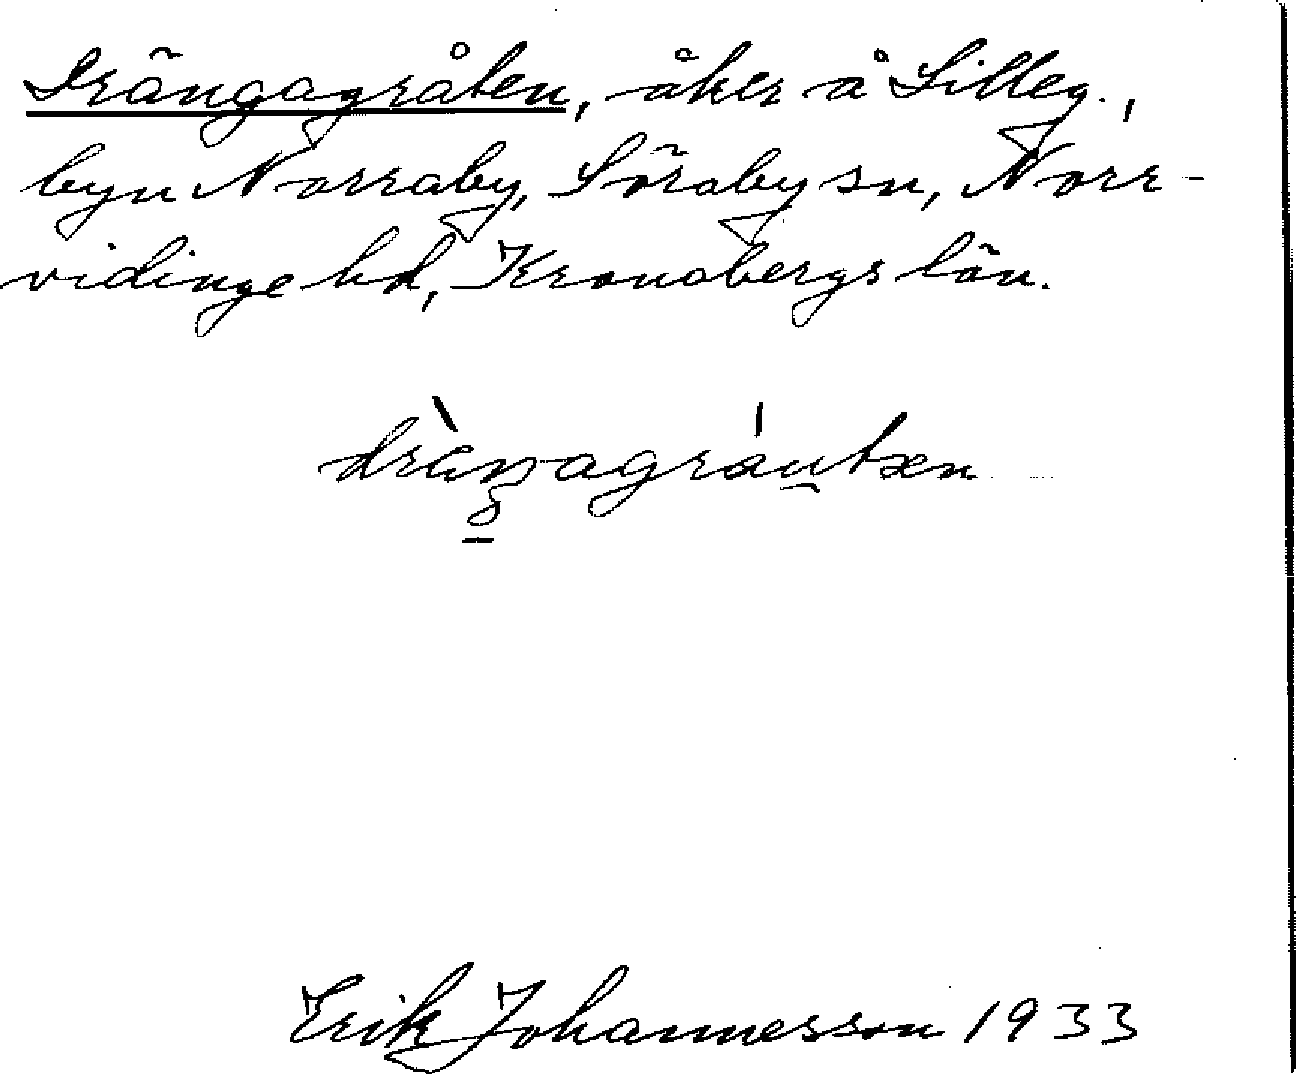 Drängagråten, åker å Lilleg.,
byn Norraby, Söraby sn, Norr-
vidinge hd, Kronobergs län.
dràŋagráu̯tæn
Erik Johannesson 1933